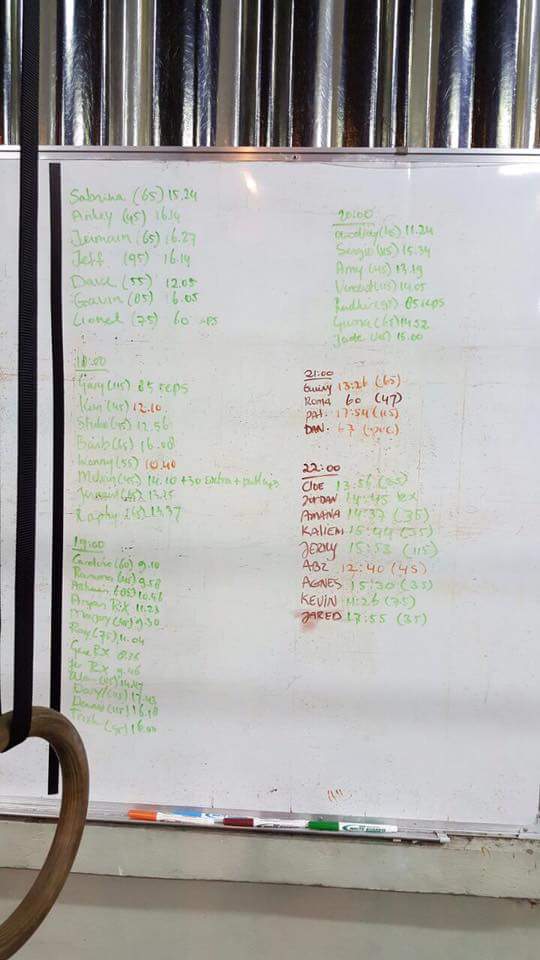 Sabrina (65) 15.24
Anley (45) 16.14
Jermain (65) 16.27
Jeff (95) 16.19
Dave (55) 12.05
Gavin (85) 16.05
Lionel (75) 60
18:00
Gary (115) 85 reps
Kim (45) 12.10
(75) 12.56
Barb (65) 16.08
(55) 10.40
(45) 14.10 + 30 extra + pull ups
(65) 13.15
Raphy (65) 13.37
19:00
Caroline (60) 9.10
Ramona (45) 9.58
10.46
Aryan RX 11.23
9.30
Ray (75) 11.04
Gene RX 8.26
Jer RX 9.46
Alan (115) 14.47
Daryl (115) 17.43
Dennis (115) 16.18
Trish 16.00
20:00
11.24
Sergio (115) 15.34
Amy (45) 13.19
(45) 14.05
85 reps
Guma (65) 14.52
Jade 15.00
21:00
13:26 (65)
Roma 60 (47)
Pat. 17:54 (115)
DAN. 67
22:00
CLOE 13:56 (35)
JORDAN 14:45 RX
AMANA 14:37 (35)
KALIEM 15:44 (35)
JERRY 15:53 (115)
ABZ 12:40 (45)
AGNES 15:30 (35)
KEVIN 11:26 (75)
JARED 17:55 (35)